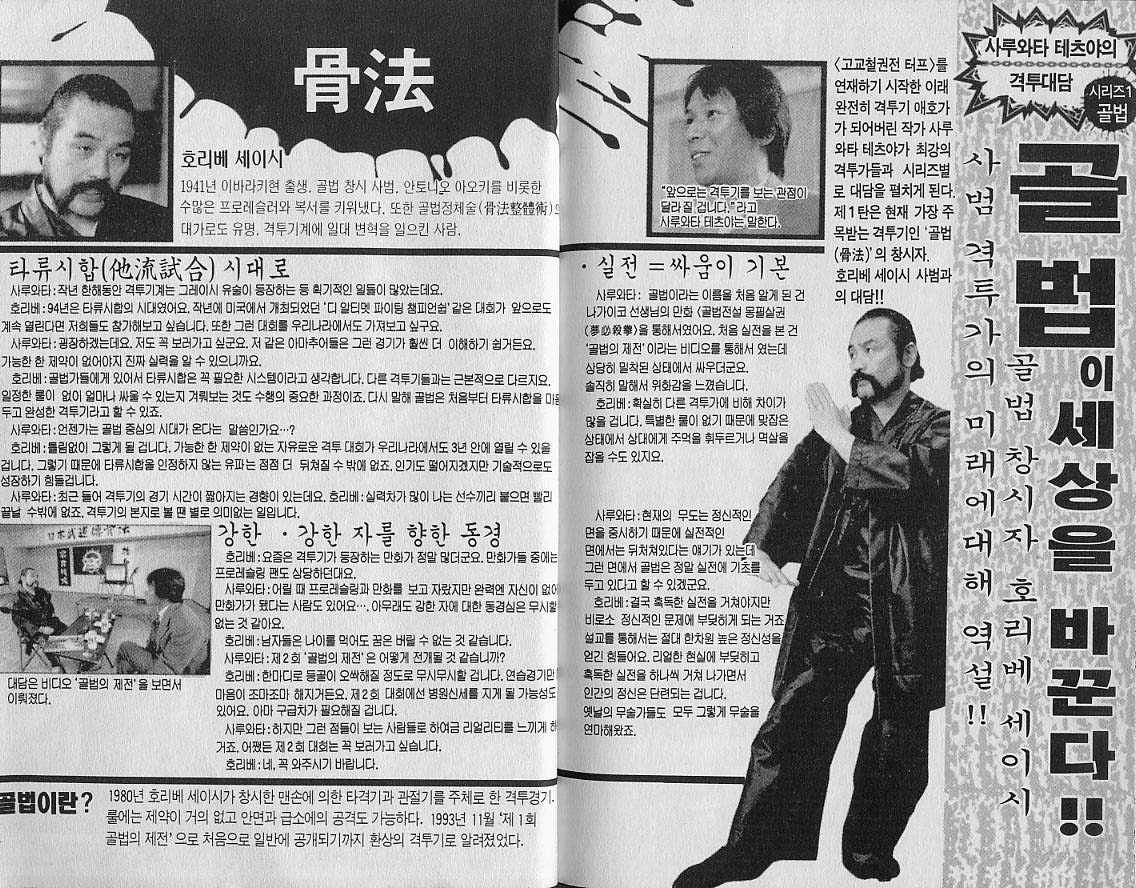 사루와타 테츠야의
격투대담
시리즈1
골법
골법이 세상을 바꾼다!!
골법 창시자 호리베 세이시
사범 격투가의 미래에대해 역설!!
〈고교철권전 터프〉를
연재하기 시작한 이래
완전히 격투기 애호가
가 되어버린 작가 사루
와타 테츠야가 최강의
격투가들과 시리즈별
로 대담을 펼치게 된다.
제1탄은 현재 가장 주
목받는 격투기인 '골법
(骨法)'의 창시자.
호리베 세이시 사범과
의 대담!!
"앞으로는 격투기를 보는 관점이
달라질 겁니다."라고
사루와타 테츠야는 말한다.
· 실전 = 싸움이 기본
사루와타 : 골법이라는 이름을 처음 알게 된 건
나가이코 선생님의 만화 〈골법전설 몽필살권
(夢必殺拳)을 통해서였어요. 처음 실전을 본 건
'골법의 제전' 이라는 비디오를 통해서 였는데
상당히 밀착된 상태에서 싸우더군요.
솔직히 말해서 위화감을 느꼈습니다.
호리베 : 확실히 다른 격투가에 비해 차이가
많을 겁니다. 특별한 룰이 없기 때문에 맞잡은
상태에서 상대에게 주먹을 휘두르거나 멱살을
잡을 수도 있지요.
사루와타 : 현재의 무도는 정신적인
면을 중시하기 때문에 실전적인
면에서는 뒤쳐져있다는 얘기가 있는데
그런 면에서 골법은 정말 실전에 기초를
두고 있다고 할 수 있겠군요.
호리베 : 결국 혹독한 실전을 거쳐야지만
비로소 정신적인 문제에 부딪히게 되는 거죠
설교를 통해서는 절대 한차원 높은 정신성을
얻긴 힘들어요. 리얼한 현실에 부딪히고
혹독한 실전을 하나씩 거쳐 나가면서
인간의 정신은 단련되는 겁니다.
옛날의 무술가들도 모두 그렇게 무술을
연마해왔죠.
骨法
호리베 세이시
1941년 이바라키현 출생. 골법 창시 사범. 안토니오 아오키를 비롯한
수많은 프로레슬러와 복서를 키워냈다. 또한 골법정체술(骨法整體術)의
대가로도 유명. 격투기계에 일대 변혁을 일으킨 사람.
타류시합(他流試合) 시대로
사루와타 : 작년 한해동안 격투기계는 그레이시 유술이 등장하는 등 획기적인 일들이 많았는데요.
호리베 : 94년은 타류시합의 시대였어요. 작년에 미국에서 개최되었던 '디 얼티멋 파이팅 챔피언쉽' 같은 대회가 앞으로도
계속 열린다면 저희들도 참가해보고 싶습니다. 또한 그런 대회를 우리나라에서도 가져보고 싶구요.
사루와타 : 굉장하겠는데요. 저도 꼭 보러가고 싶군요. 저 같은 아마추어들은 그런 경기가 훨씬 더 이해하기 쉽거든요.
가능한 한 제약이 없어야지 진짜 실력을 알 수 있으니까요.
호리베 : 골법가들에게 있어서 타류시합은 꼭 필요한 시스템이라고 생각합니다. 다른 격투기들과는 근본적으로 다르지요.
일정한 룰이 없이 얼마나 싸울 수 있는지 겨뤄보는 것도 수행의 중요한 과정이죠. 다시 말해 골법은 처음부터 타류시합을
두고 완성한 격투기라고 할 수 있죠.
사루와타 : 언젠가는 골법 중심의 시대가 온다는 말씀인가요…?
호리베 : 틀림없이 그렇게 될 겁니다. 가능한 한 제약이 없는 자유로운 격투 대회가 우리나라에서도 3년 안에 열릴 수 있을
겁니다. 그렇기 때문에 타류시합을 인정하지 않는 유파는 점점 더 뒤쳐질 수밖에 없죠. 인기도 떨어지겠지만 기술적으로도
성장하기 힘들겁니다.
사루와타 : 최근 들어 격투기의 경기 시간이 짧아지는 경향이 있는데요. 호리베 : 실력차가 많이 나는 선수끼리 붙으면 빨리
끝날 수밖에 없죠. 격투기의 본지로 볼 땐 별로 의미없는 일입니다.
日本武道傳骨法
대담은 비디오 '골법의 제전'을 보면서
이뤄졌다.
강한 · 강한 자를 향한 동경
호리베 : 요즘은 격투기가 등장하는 만화가 정말 많더군요. 만화가들 중에는
프로레슬링 팬도 상당하던데요.
사루와타 : 어릴 때 프로레슬링과 만화를 보고 자랐지만 완력엔 자신이 없어
만화가가 됐다는 사람도 있어요…. 아무래도 강한 자에 대한 동경심은 무시할
없는 것 같아요.
호리베 : 남자들은 나이를 먹어도 꿈은 버릴 수 없는 것 같습니다.
사루와타 : 제2회 '골법의 제전'은 어떻게 전개될 것 같습니까?
호리베 : 한마디로 등골이 오싹해질 정도로 무시무시할 겁니다. 연습경기만
마음이 조마조마 해지거든요. 제2회 대회에선 병원신세를 지게 될 가능성도
있어요. 아마 구급차가 필요해질 겁니다.
사루와타 : 하지만 그런 점들이 보는 사람들로 하여금 리얼리티를 느끼게 하
거죠. 어쨌든 제2회 대회는 꼭 보러가고 싶습니다.
호리베 : 네, 꼭 와주시기 바랍니다.
골법이란?
1980년 호리베 세이시가 창시한 맨손에 의한 타격기과 관절기를 주체로 한 격투경기.
룰에는 제약이 거의 없고 안면과 급소에의 공격도 가능하다. 1993년 11월 '제1회
골법의 제전'으로 처음으로 일반에 공개되기까지 환상의 격투기로 알려졌었다.